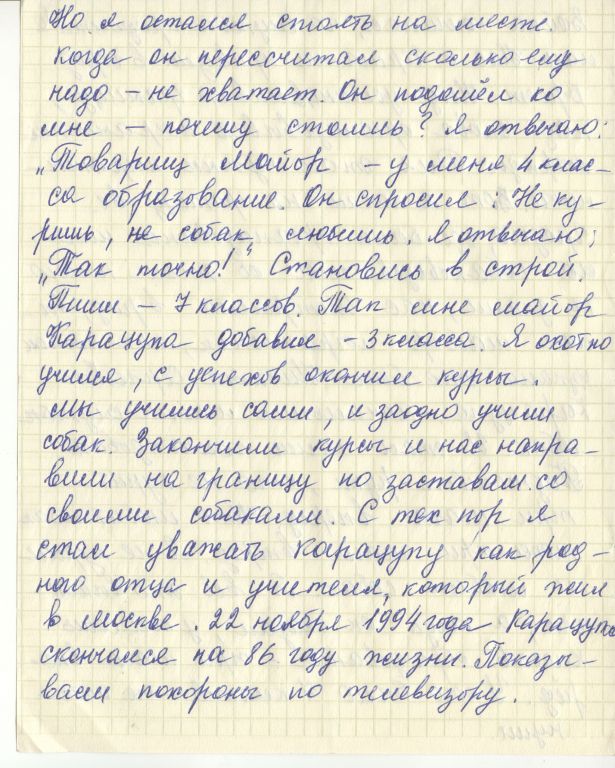 Но я остался стоять на месте.
Когда он перессчитал сколько ему
надо – не хватает. Он подошёл ко
мне – почему стоишь? Я отвечаю:
„Товарищ майор – у меня 4 клас-
са образование. Он спросил: Не ку-
ришь, не собак, любишь. Я отвечаю;
„Так точно!" Становись в строй.
Пиши – 7 классов. Так мне майор
Карацупа добавил – 3 класса. Я охотно
учился, с успехов окончил курсы.
Мы учились сами, и заодно учили
собак. Закончили курсы и нас напра-
вили на границу по заставам со
своими собаками. С тех пор я
стал уважать Карацупу как род-
ного отца и учителя, который жил
в Москве. 22 ноября 1994 года Карацупа
скончался на 86 году жизни. Показы-
вали похороны по телевизору.